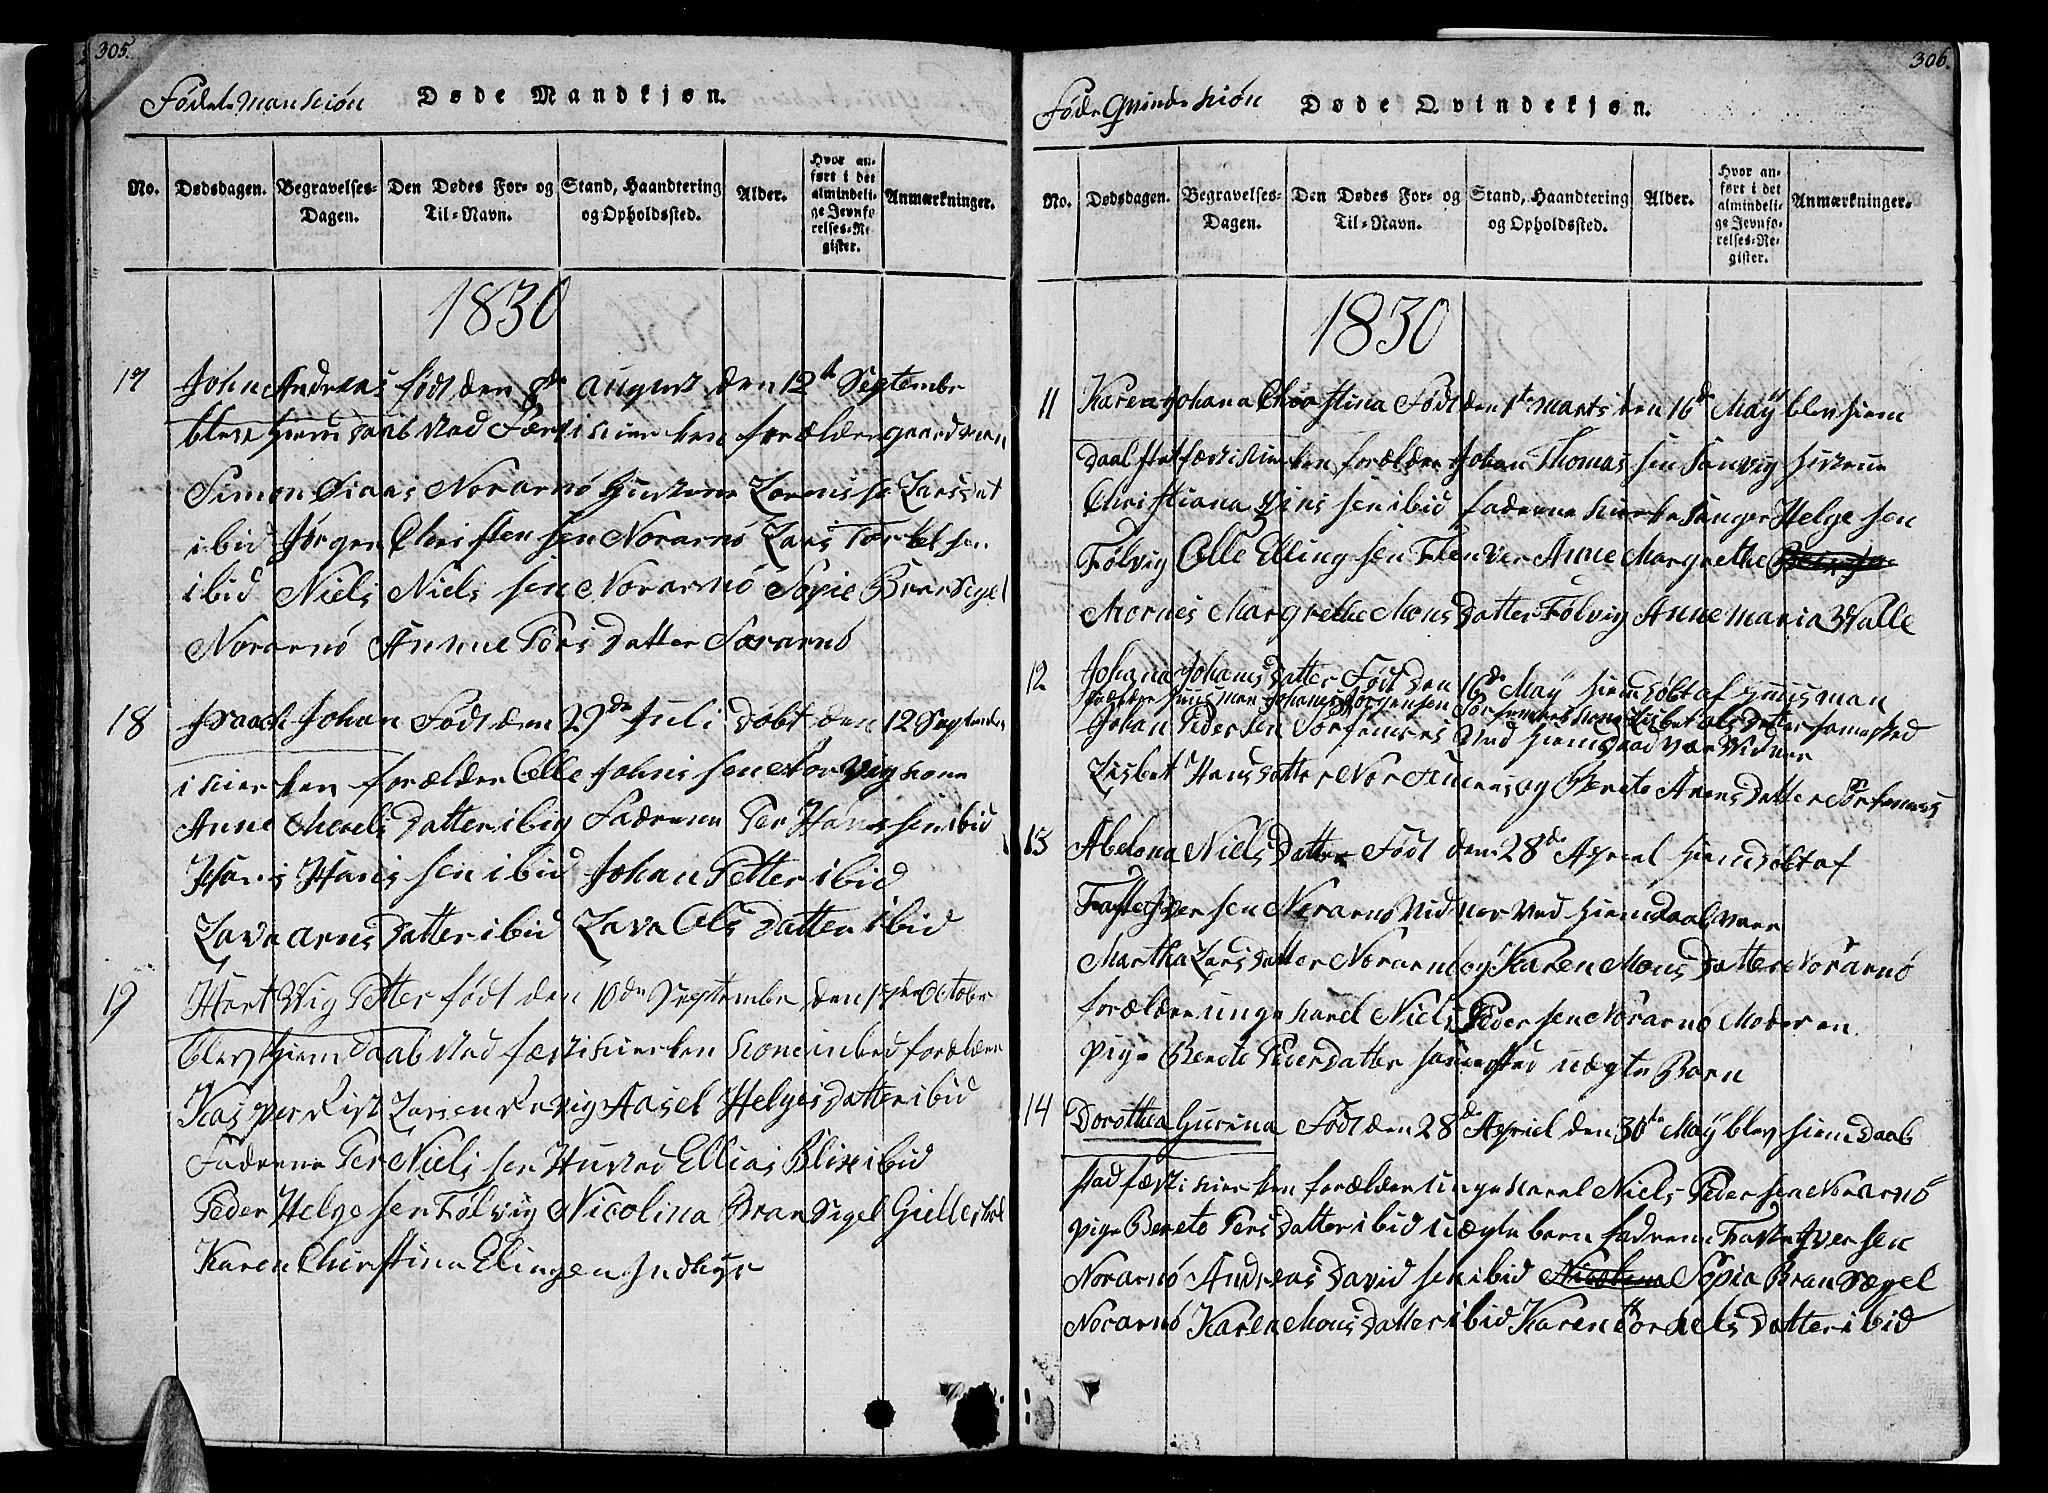 305.
Føde Mankiøn Døde Mandkjøn.
No. Dødsdagen. Begravelses-Dagen. Den Dødes For- og Til-Navn. Stand, Haandtering og Opholdssted. Alder. Hvor anført i det almindelige Jevnførelses-Register. Anmærkninger.
1830
17 John Andreas født den 8de august den 12te Septembr
blev hiemdaab stad fæst i kierken forældre gaardman
Simon Norarnø Hustrue Larsdat
ibid Jørgen Christensen Norarnø Lars Torkelsen
ibid Niels Nielsen Norarnø Sopie Bransigel
Norarnø Anne Torsdatter Sørarnø
18 Isaach Johan Født den 29de Juli døbt den 12 September
i kierken forældre Olle Johnsen kone
Anne datter ibid Faderne Per Hansen ibid
Hans Hansen ibid Johan Petter ibid
Lava Arnsdatter ibid Lava Olsdatter ibid
19 Hartvig Petter født den 10de Septembr den October
blev hiemdaab stad fæst i kierken forældre
Kasper Larsen Aasel Helgesdatter ibid
Faderne Per Nielsen Ellias Blix ibid
Peder Helgesen Følvig Nicolina Bransigel
Karen Christina Elingen Indhyr
306.
Føde Qvindekiøn Døde Qvindekjøn.
No. Dødsdagen. Begravelses-Dagen. Den Dødes For- og Til-Navn. Stand, Haandtering og Opholdssted. Alder. Hvor anført i det almindelige Jevnførelses-Register. Anmærkninger.
1830
11 Karen Johana Christina Født den 1te Marts den 16de Maÿ blev hiem
daab stad fæst i kierken forældre Johan Thomassen Sanvig Hustrue
Christiana ibid faderne kierkesanger Helgesen
Følvig Olle Ellingsen Anne Margrethe
Mornes Margrethe Monsdatter Følvig Anne Maria Valle
12 Johana Johansdatter Født den 16de Maÿ hiemdøbt af Huusman
forældre Huusman Johans Jørgensen Sørfinnes kone Lisbet Olsdatter samested
Johan Pedersen Sørfinnes ved hiemdaab var vidner
Lisbet Hansdatter og Berete Arensdatter Sørfinnes
13 Abelona Nielsdatter Født den 28de Aprel hiemdøbt af
Iversen Norarnø vidner ved hiemdaab var
Martha Larsdatter Norarnø og Karen Monsdatter Norarnø
forældre unge karel Niels Pedersen Norarnø Moderen
pige Berete Pedersdatter samested uægte Barn
14 Dorothea Gurina Født den 28de Apriel den 30te Maÿ blev hiemdaab
stad fæst i kierken forældre unge karel Niels Pedersen Norarnø
pige Berete Persdatter ibid uægte barn fadrene Iversen
Norarnø Andreas Davidsen ibid Sopia Bransegel
Norarnø Karen Monsdatter ibid Karen Torkelsdatter ibid